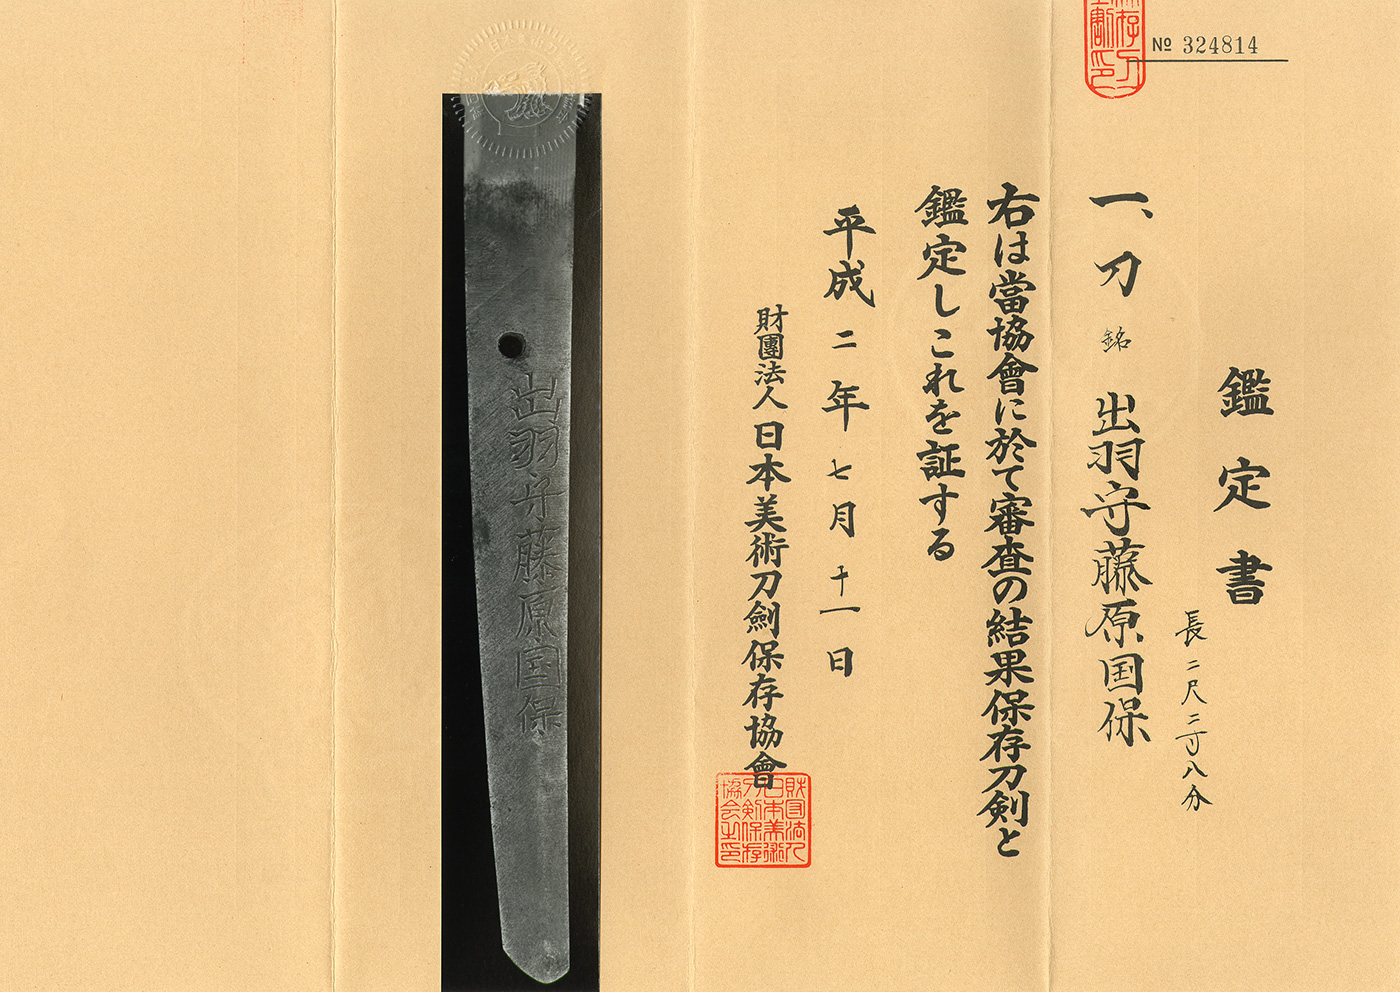 № 324814
鑑定書
長二尺二寸八分
一、刀 銘 出羽守藤原国保
右は當協會に於て審査の結果保存刀剣と
鑑定しこれを証する
平成二年七月十一日
財團法人日本美術刀劍保存協會
財団法人
日本美術
刀剣保存
協会之印
出羽守藤原国保